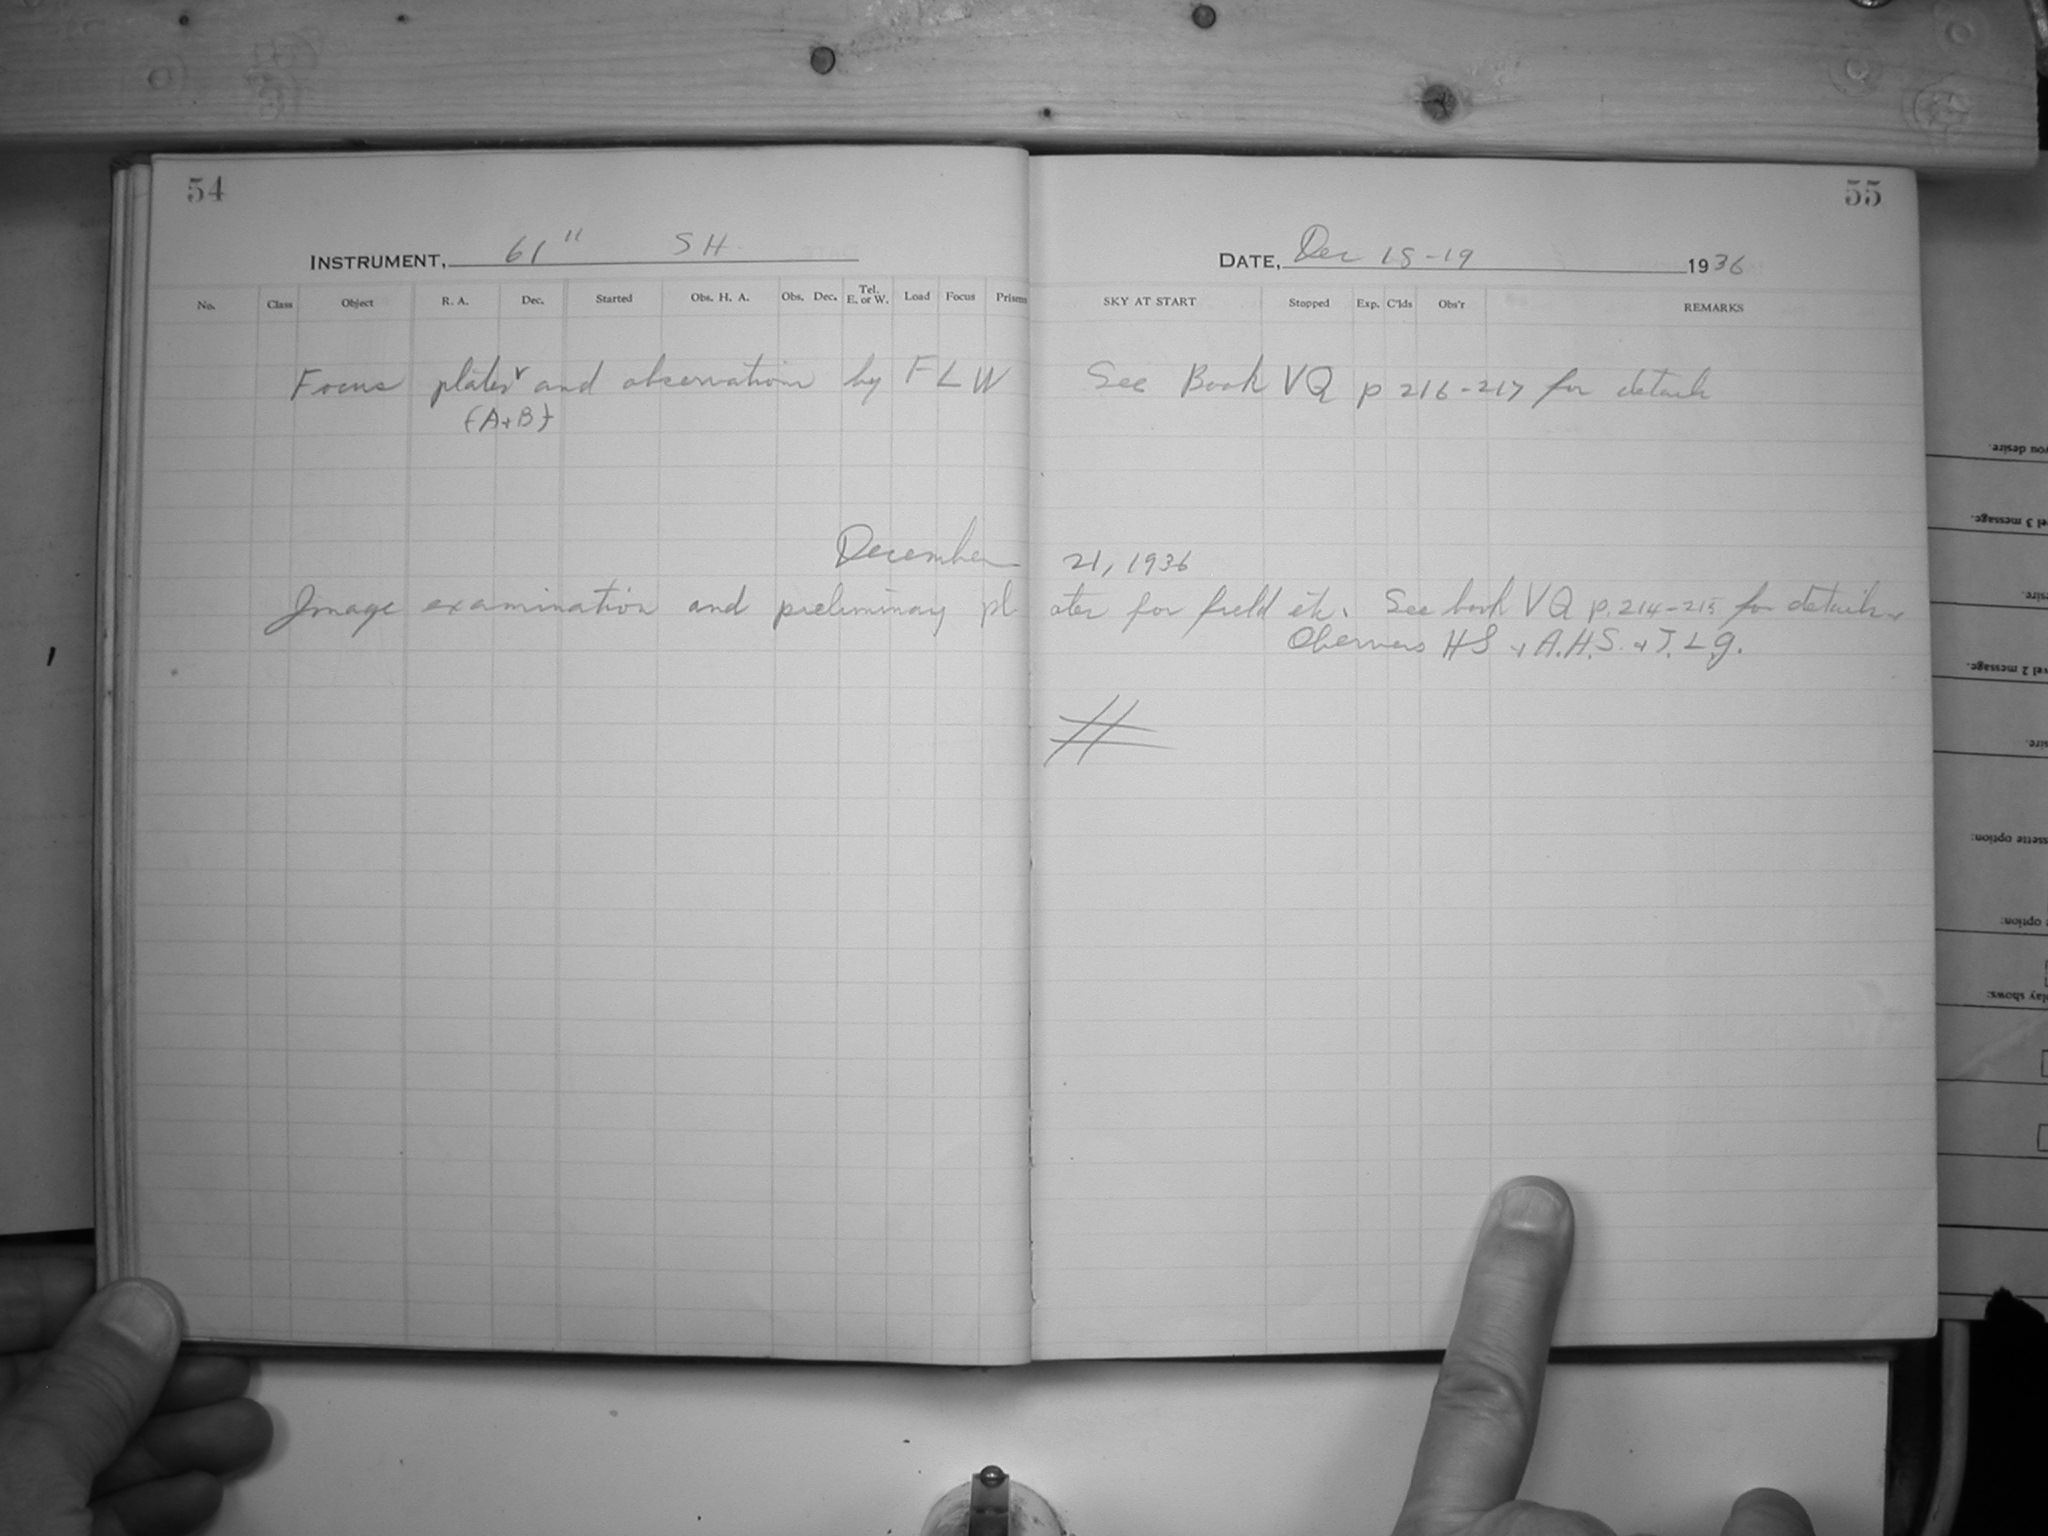 54
55
INSTRUMENT, 61" SH
DATE, Dec 18-19 1936
No. Class Object R. A. Dec. Started Obs. H. A. Obs. Dec. Tel. E. or W. Load Focus Prisms SKY AT START Stopped Exp. C'lds Obs'r REMARKS
Focus plates and observations by FLW See Book VQ p 216-217 for details
(A+B)
December 21, 1936
Image examination and preliminary plates for field etc. See book VQ p. 214-215 for details
Observers HS + A.H.S. + J.L.G.
you desire.
el 3 message.
sire.
vel 2 message.
sire.
ssette option:
option:
play shows: